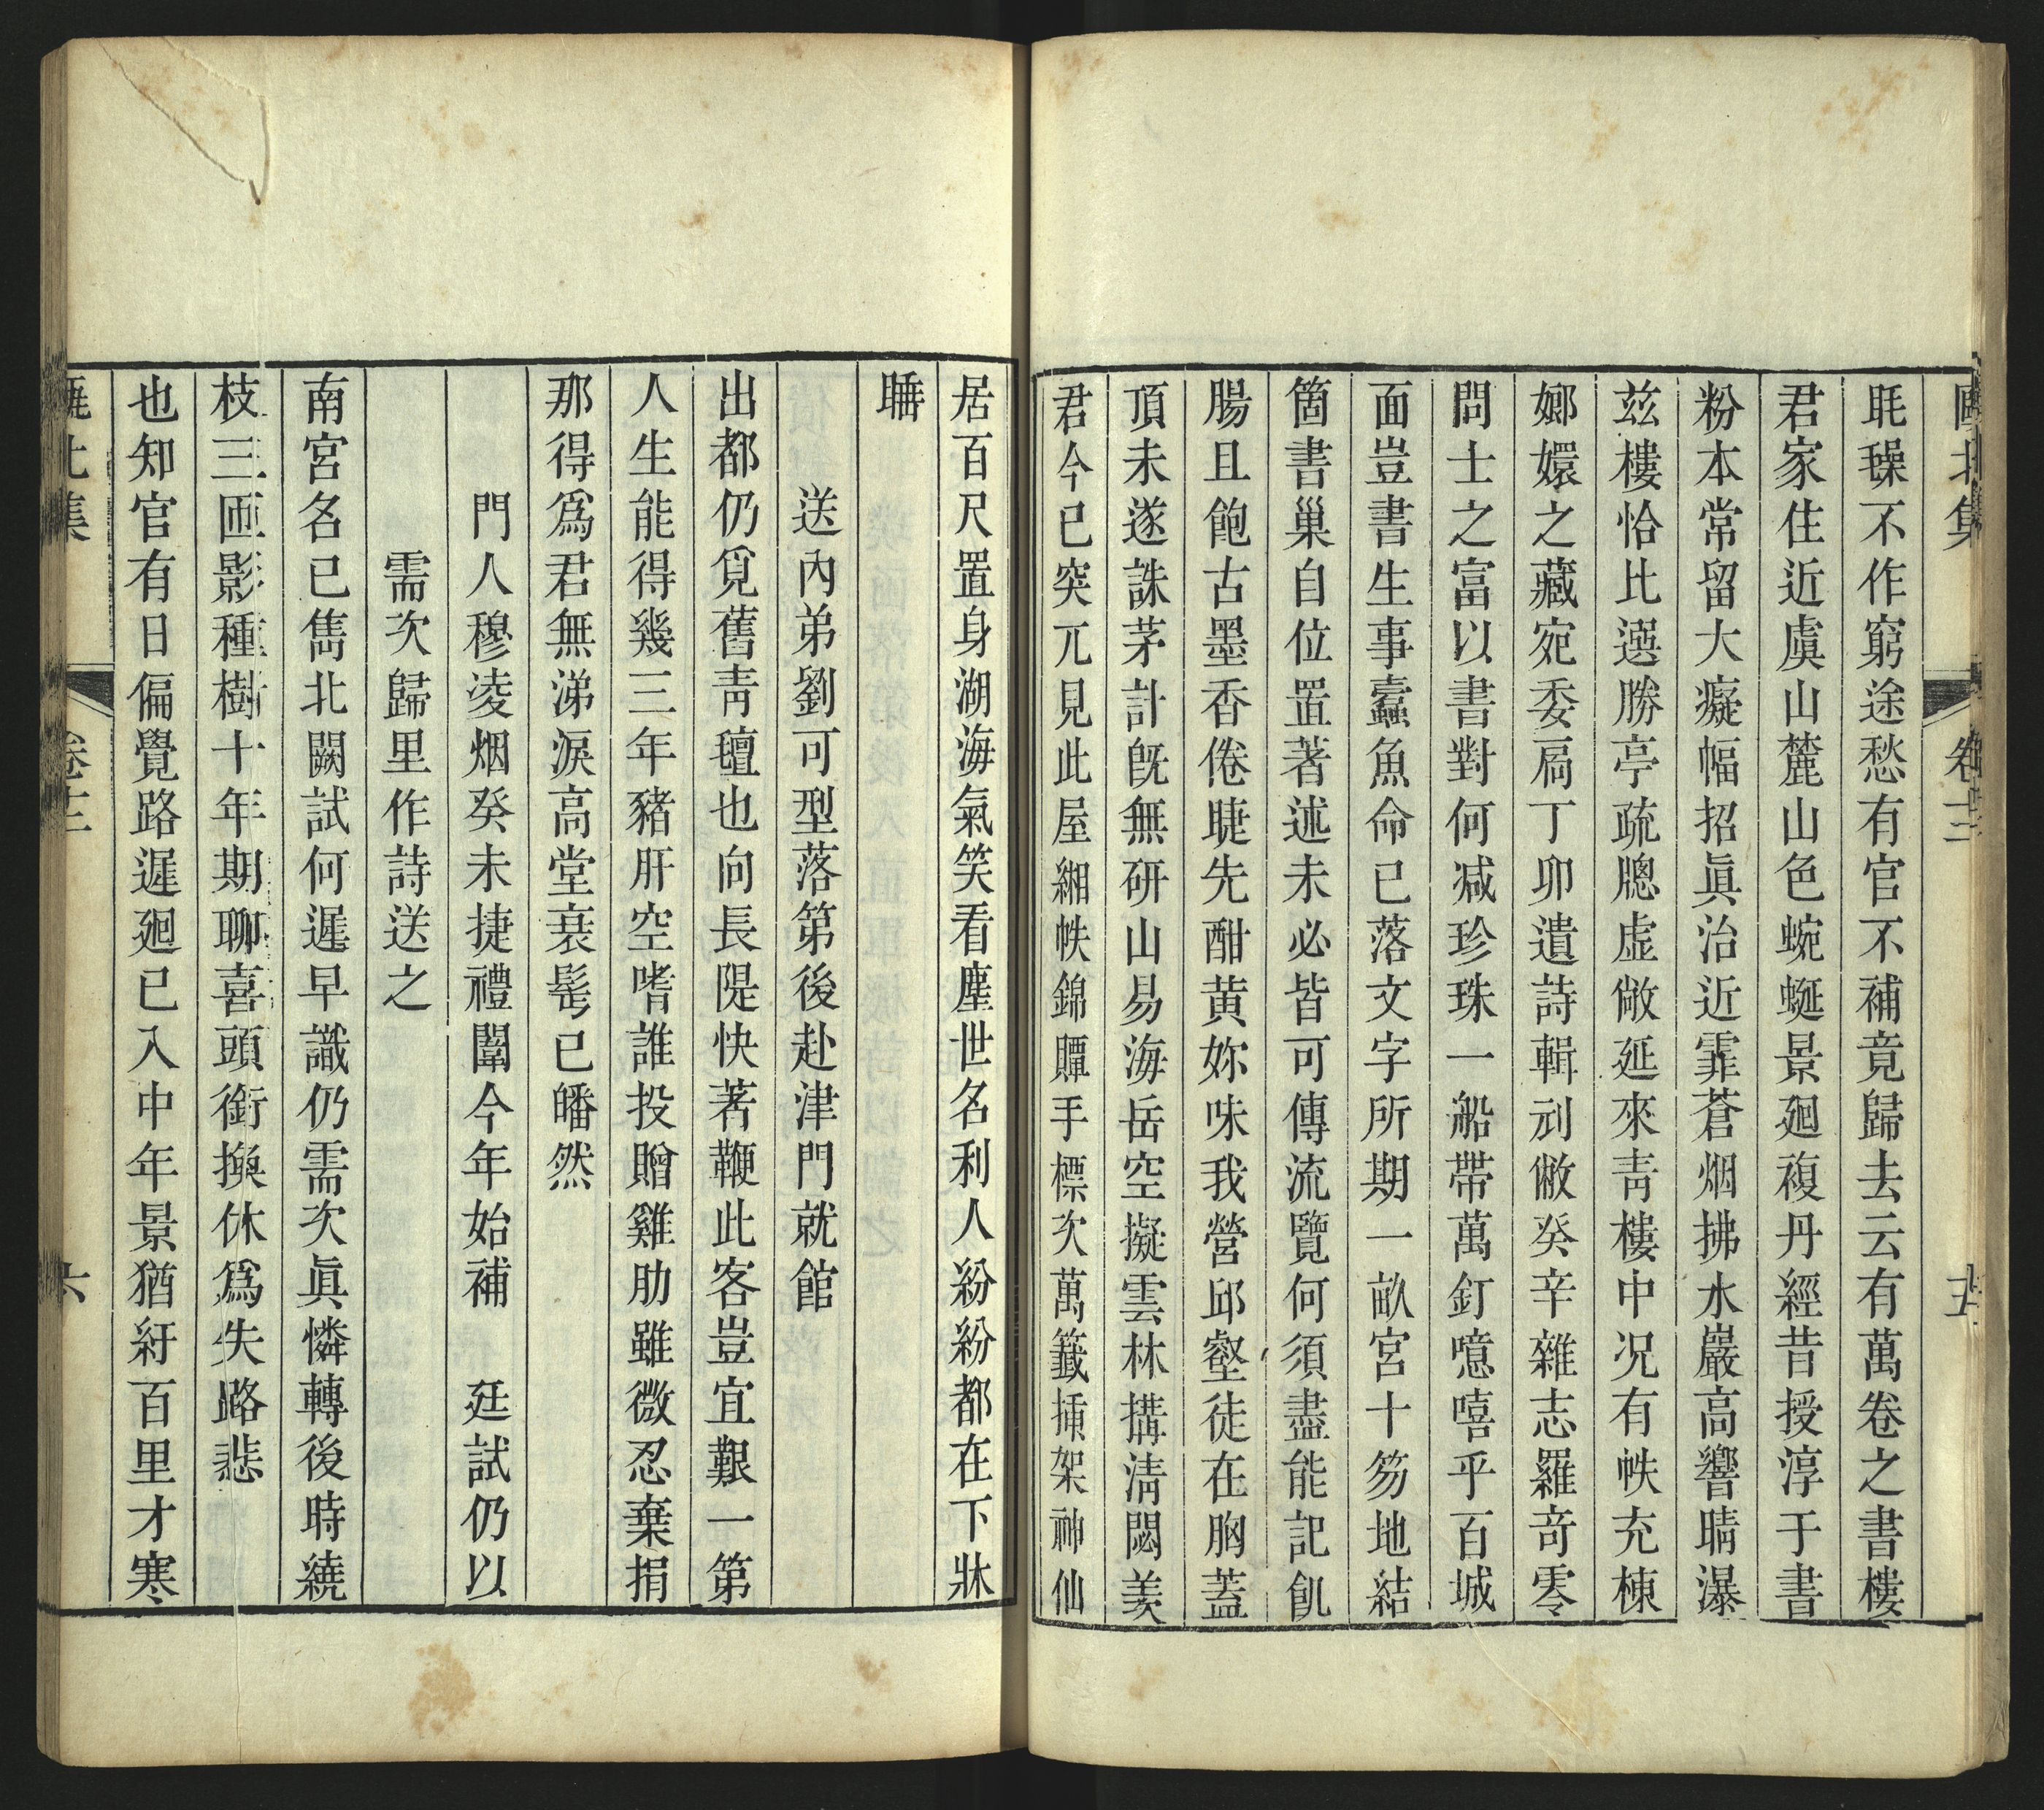 甌北集 卷十二 五
毦毷不作窮途愁有官不補竟歸去云有萬卷之書樓
君家住近虞山麓山色蜿蜒景廻複丹經昔授淳于書
粉本常留大癡幅招眞治近霏蒼烟拂水巖高響晴瀑
兹樓恰比選勝亭疏牎虛敞延來靑樓中况有帙充棟
嫏嬛之藏宛委扃丁卯遺詩輯刓敝癸辛雜志羅奇零
問士之富以書對何减珍珠一船帶萬釘噫嘻乎百城
面豈書生事蠹魚命已落文字所期一畝宮十笏地結
箇書巢自位置著述未必皆可傳流覽何須盡能記飢
腸且飽古墨香倦睫先酣黄妳味我營邱壑徒在胸蓋
頂未遂誅茅計旣無硏山易海岳空擬雲林搆淸閟羨
君今已突兀見此屋緗帙錦贉手標次萬籤揷架神仙
居百尺置身湖海氣笑看塵世名利人紛紛都在下牀
睡
送內弟劉可型落第後赴津門就館
出都仍覓舊靑氊也向長隄快著鞭此客豈宜艱一第
人生能得幾三年豬肝空嗜誰投贈雞肋雖微忍棄捐
那得爲君無涕淚高堂衰髩已皤然
門人穆凌烟癸未捷禮闈今年始補 廷試仍以
需次歸里作詩送之
南宮名已雋北闕試何遲早識仍需次眞憐轉後時繞
枝三匝影種樹十年期聊喜頭銜換休爲失路悲
也知官有日偏覺路遲廻已入中年景猶紆百里才寒
甌北集 卷十二 六